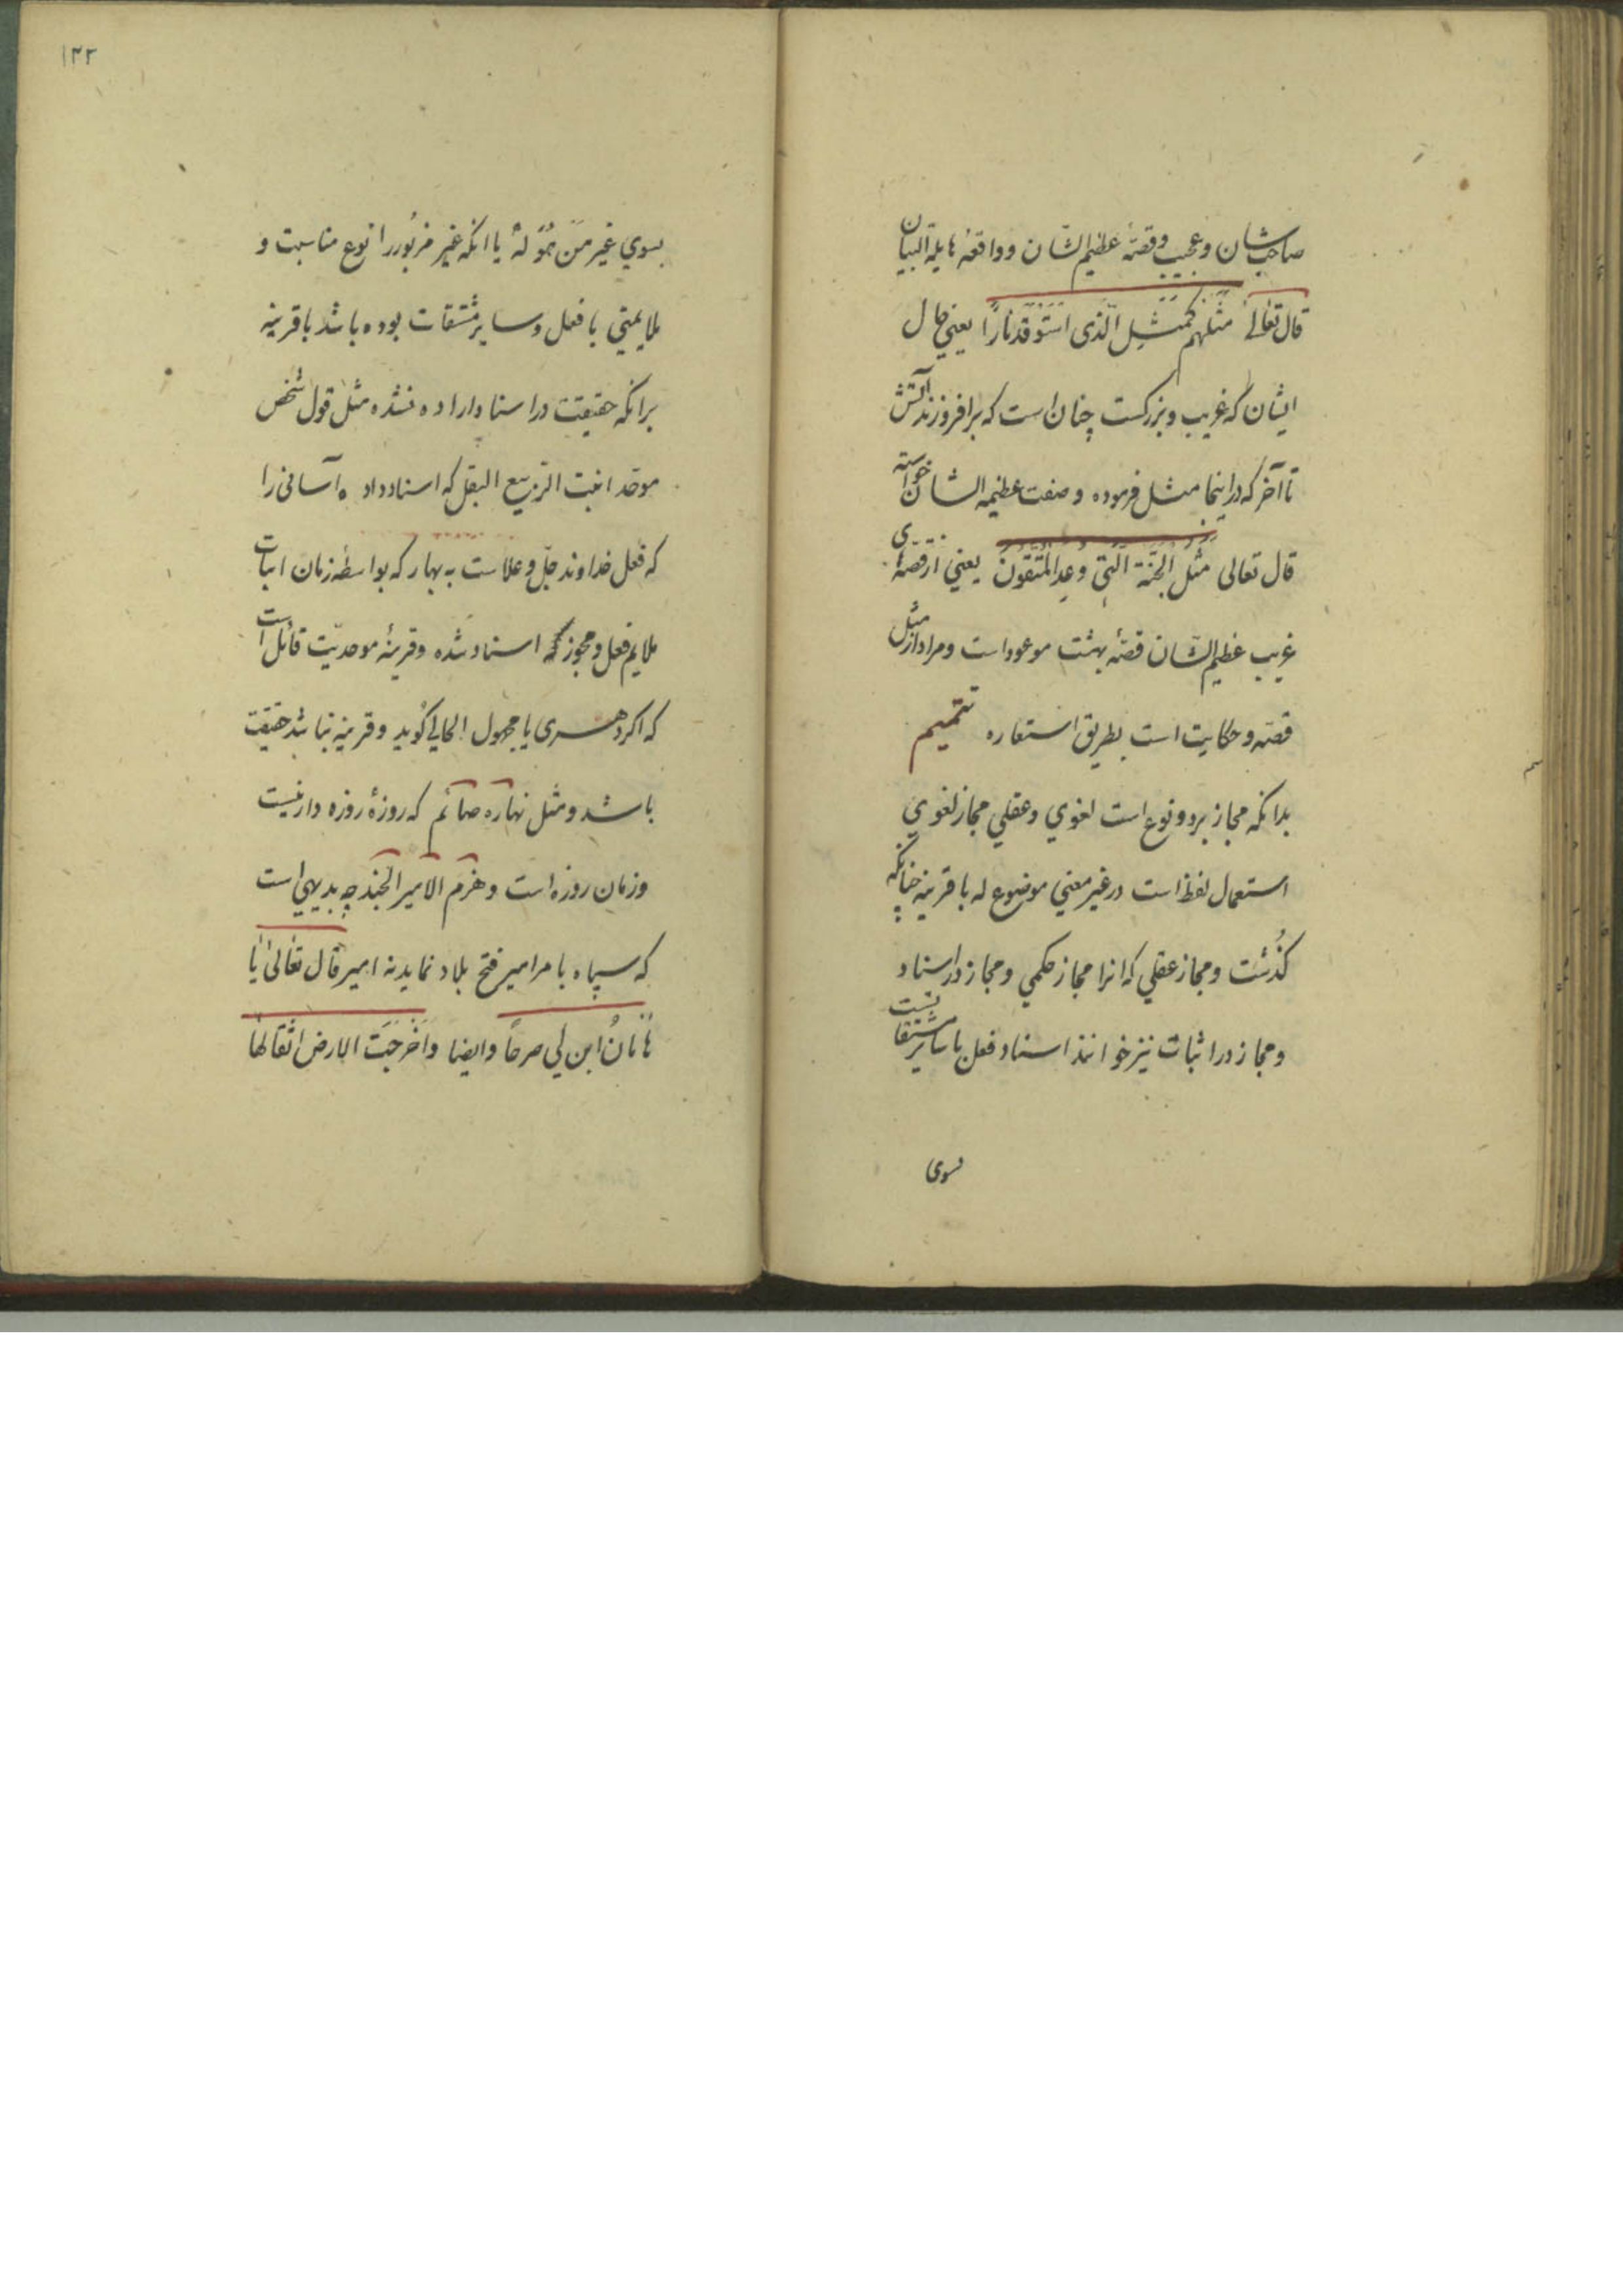 صاحب شان و عجیب و قصهٔ عظیم الشان و واقعهٔ هایلة البیان
قال تعالی مثلهم کمثل الّذی استوقد نارًا یعنی حال
ایشان که غریب و بزرکست چنان است که برافروزند آتش
تا آخر که در اینجا مثل فرموده و صفت عظیمه الشان خواسته
قال تعالی مثل الجنّة الّتی وعد المتّقون یعنی از قصّهٔای
غریب عظیم الشان قصّهٔ بهشت موعود است و مراد از مثل
قصّه و حکایت است بطریق استعاره تتمیم
بدانکه مجاز بر دو نوع است لغوی و عقلی مجاز لغوی
استعمال لفظ است در غیر معنی موضوع له با قرینه چنانکه
کذُشت و مجاز عقلی که انرا مجاز حکمی و مجاز در اسناد
و مجاز در اثبات نیز خوانند اسناد فعل یا سایر مشتقات
بسوی
۱۲۲
بسوی غیر مَن هُوَ لهُ یا انکه غیر مزبُور را نوع مناسبت و
ملایمتی با فعل و سایر مشتقات بوده باشد با قرینه
برانکه حقیقت در اسناد اراده نشده مثل قول شخص
موحّد انبت الرّبیع البقل که اسناد داده آسانی را
که فعل خداوند جلّ و علاست به بهار که بواسطهٔ زمان اثبات
ملایم فعل و مجوز که اسناد شده و قرینهٔ موحدیّت قائل است
که اکر دهری یا مجهول الحالی کوید و قرینه نباشد حقیقت
باشد و مثل نهاره صائم که روزهٔ روزه دار نیست
و زمان روزه است و هزم الامیر الجند چه بدیهی است
که سپاه با مر امیر فتح بلاد نمایدنه امیر قال تعالی یا
هامانُ ابن لی صرحاً و ایضا و اَخْرجَت الارض اثقالها